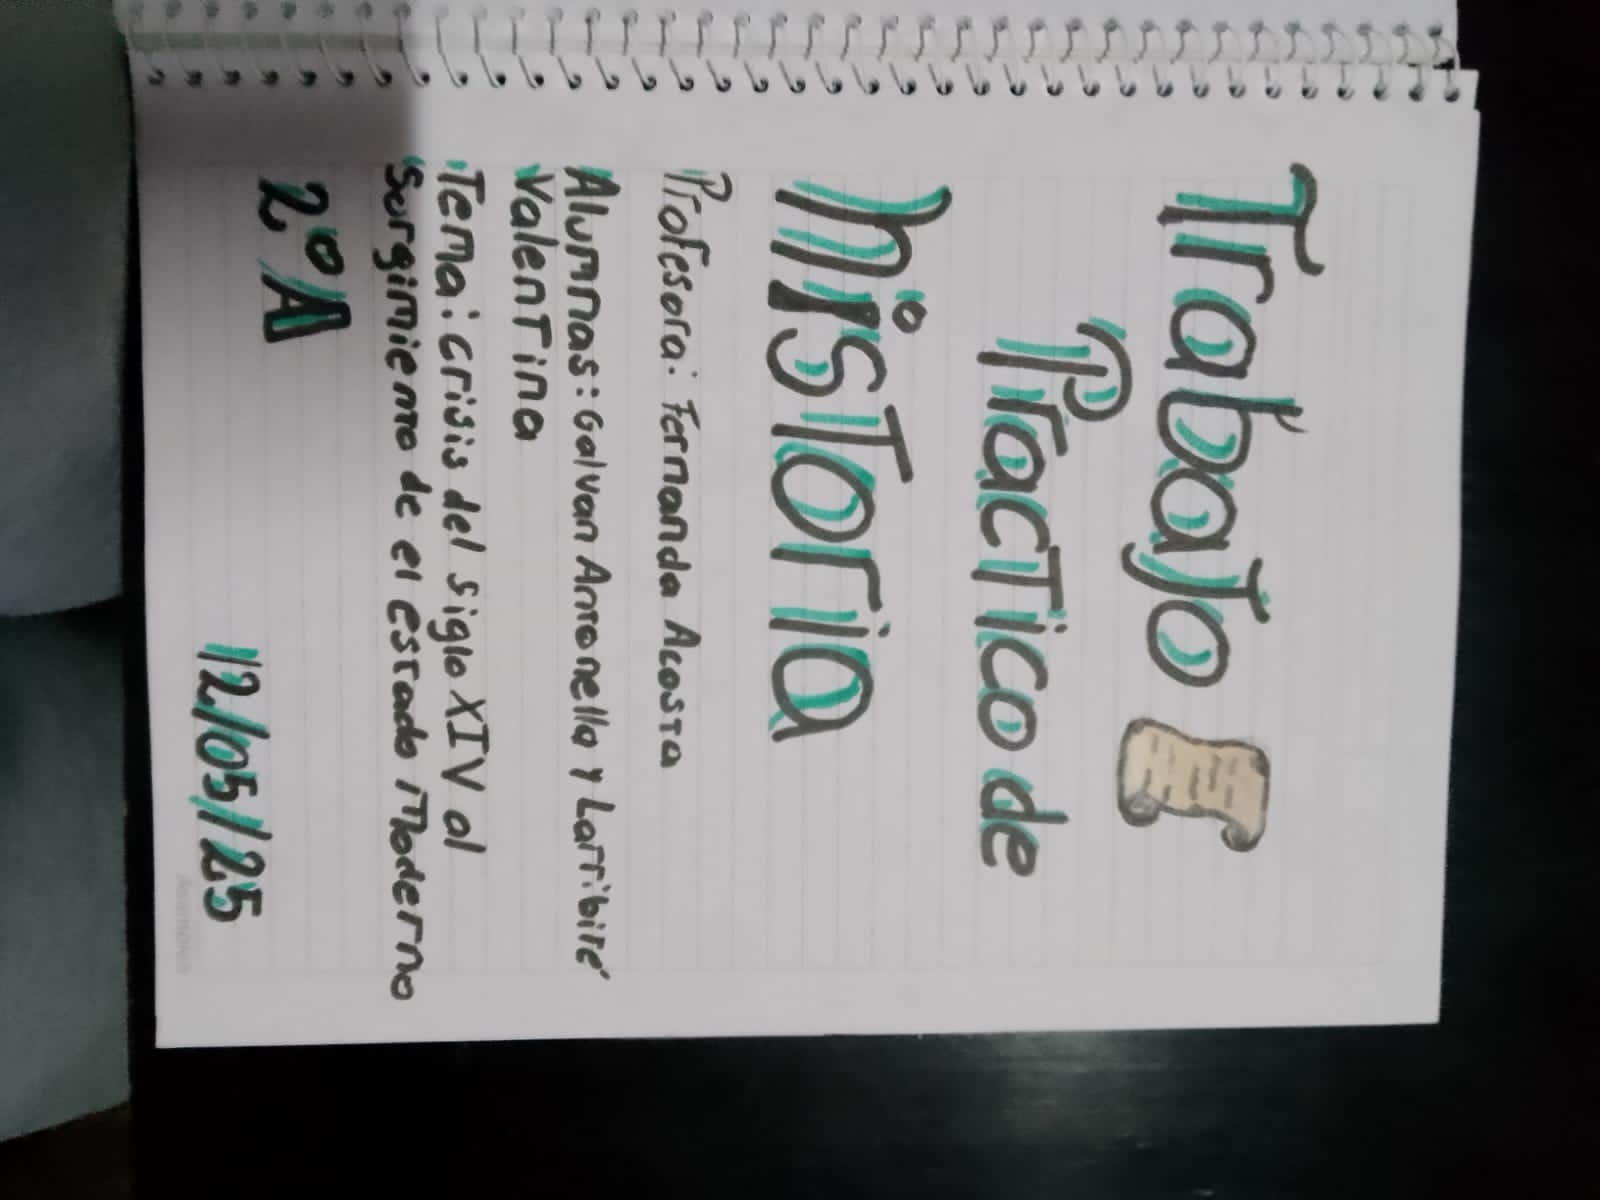 Trabajo
Practico de
historia
Profesora: Fernanda Acosta
Alumnas: Galvan Antonella y Larribité
Valentina
Tema: crisis del siglo XIV al
Surgimiento de el estado Moderno
2°A
12/05/25